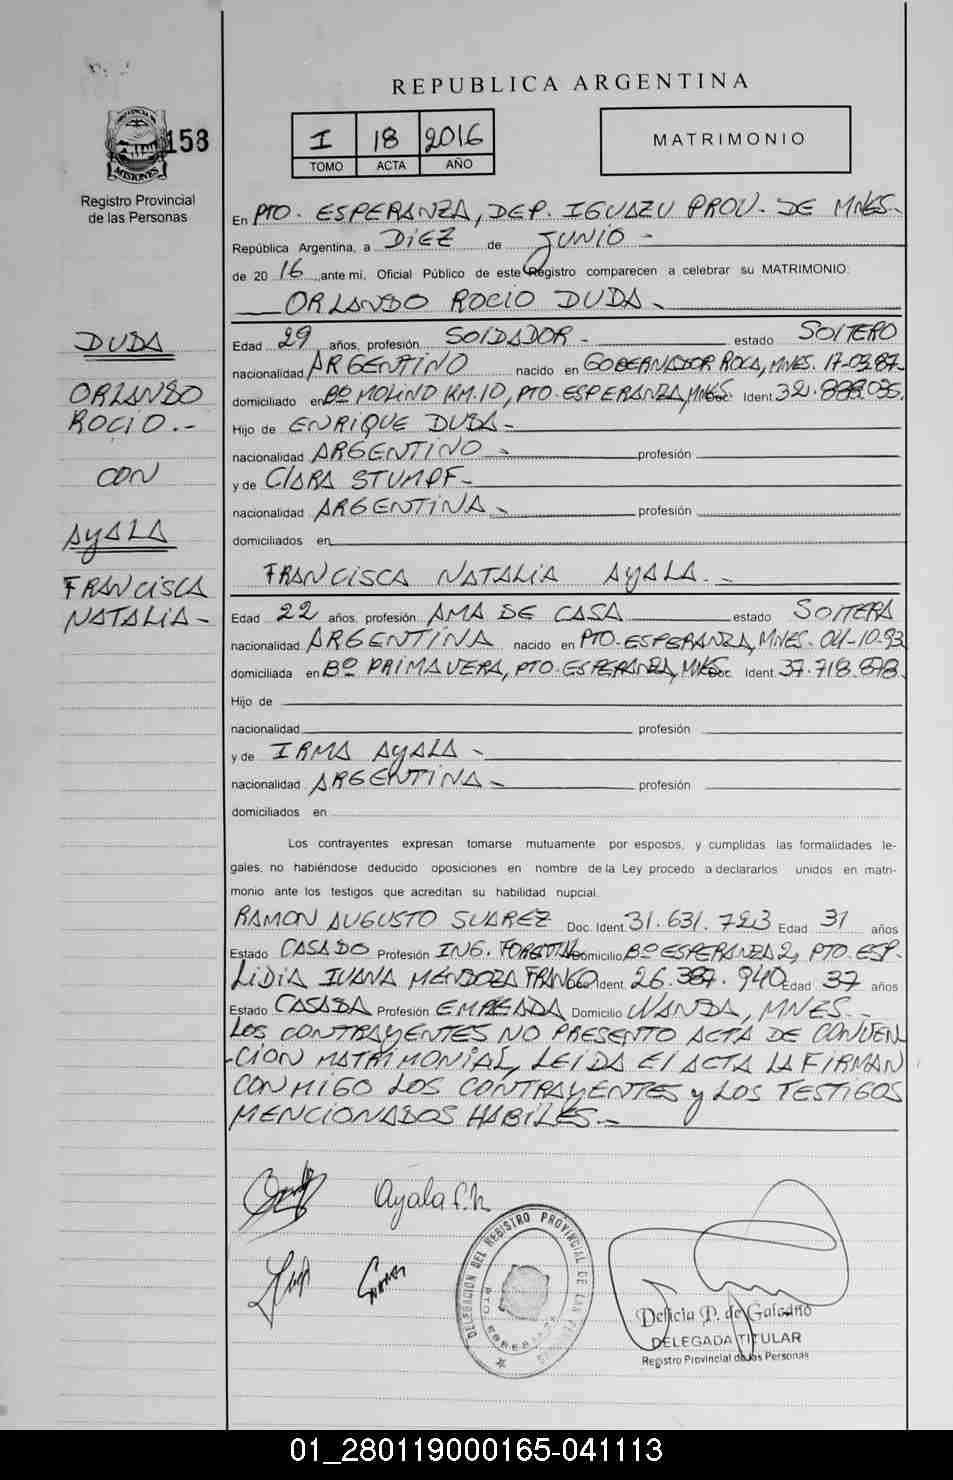 REPUBLICA ARGENTINA
PROVINCIA DE
MISIONES
158
Registro Provincial
de las Personas
I 18 2016
TOMO ACTA AÑO
MATRIMONIO
En PTO. ESPERANZA, DEP. IGUAZU PROV. DE MNES.
República Argentina, a DIEZ de JUNIO -
de 2016 ante mi, Oficial Público de este Registro comparecen a celebrar su MATRIMONIO:
ORLANDO ROCIO DUDA -
DUDA
ORLANDO
ROCIO.-
CON
AYALA
FRANCISCA
NATALIA -
Edad 29 años, profesión SOLDADOR - estado SOLTERO
nacionalidad ARGENTINO nacido en GOBERNADOR ROCA, MNES. 17-09-87-
domiciliado en Bº MOLINO KM.10, PTO. ESPERANZA, MNES. Doc. Ident. 32.
Hijo de ENRIQUE DUDA -
nacionalidad ARGENTINO - profesión
y de CLARA STUMPF -
nacionalidad ARGENTINA - profesión
domiciliados en
FRANCISCA NATALIA AYALA. -
Edad 22 años, profesión AMA DE CASA estado SOLTERA
nacionalidad ARGENTINA nacido en PTO. ESPERANZA, MNES. 04-10-93
domiciliada en Bº PRIMAVERA, PTO. ESPERANZA, MNES. Doc. Ident. 37.718.878.
Hijo de
nacionalidad profesión
y de IRMA AYALA -
nacionalidad ARGENTINA - profesión
domiciliados en
Los contrayentes expresan tomarse mutuamente por esposos, y cumplidas las formalidades le-
gales, no habiéndose deducido oposiciones en nombre de la Ley procedo a declararlos unidos en matri-
monio ante los testigos que acreditan su habilidad nupcial.
RAMON AUGUSTO SUAREZ Doc. Ident. 31.631.723 Edad 31 años
Estado CASADO Profesión ING. FORESTAL Domicilio Bº ESPERANZA 2, PTO. ESP.
LIDIA IVANA MENDOZA FRANCO Ident. 26.387.940 Edad 37 años
Estado CASADA Profesión EMPLEADA Domicilio WANDA, MNES. -
LOS CONTRAYENTES NO PRESENTO ACTA DE CONVEN
-CION MATRIMONIAL, LEIDA EL ACTA LA FIRMAN
CONMIGO LOS CONTRAYENTES y LOS TESTIGOS
MENCIONADOS HABILES. -
Ayala f.n
DELEGACION DEL REGISTRO PROVINCIAL DE LAS PERSONAS
PTO. ESPERANZA
Delicia P. de Galeano
DELEGADA TITULAR
Registro Provincial de las Personas
01_280119000165-041113